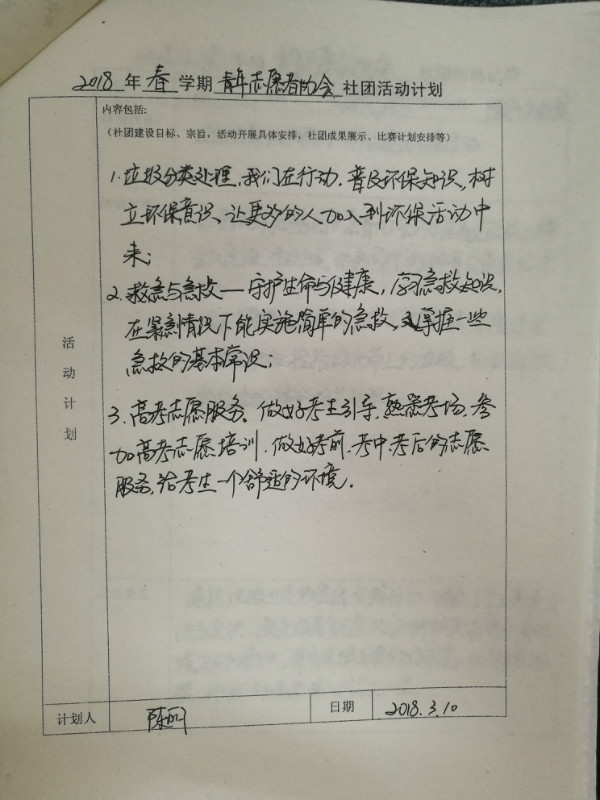 2018 年 春 学期 青年志愿者协会 社团活动计划
内容包括:
(社团建设目标、宗旨,活动开展具体安排,社团成果展示、比赛计划安排等)
1.垃圾分类处理,我们在行动.普及环保知识,树
立环保意识、让更多的人加入到环保活动中
来;
2.救急与急救——守护生命与健康,学习急救知识,
在紧急情况下能实施简单的急救,掌握一些
急救的基本常识;
3.高考志愿服务、做好考生引导,熟悉考场.参
加高考志愿培训.做好考前.考中.考后的志愿
服务,给考生一个舒适的环境.
活动计划
计划人 陈 日期 2018.3.10